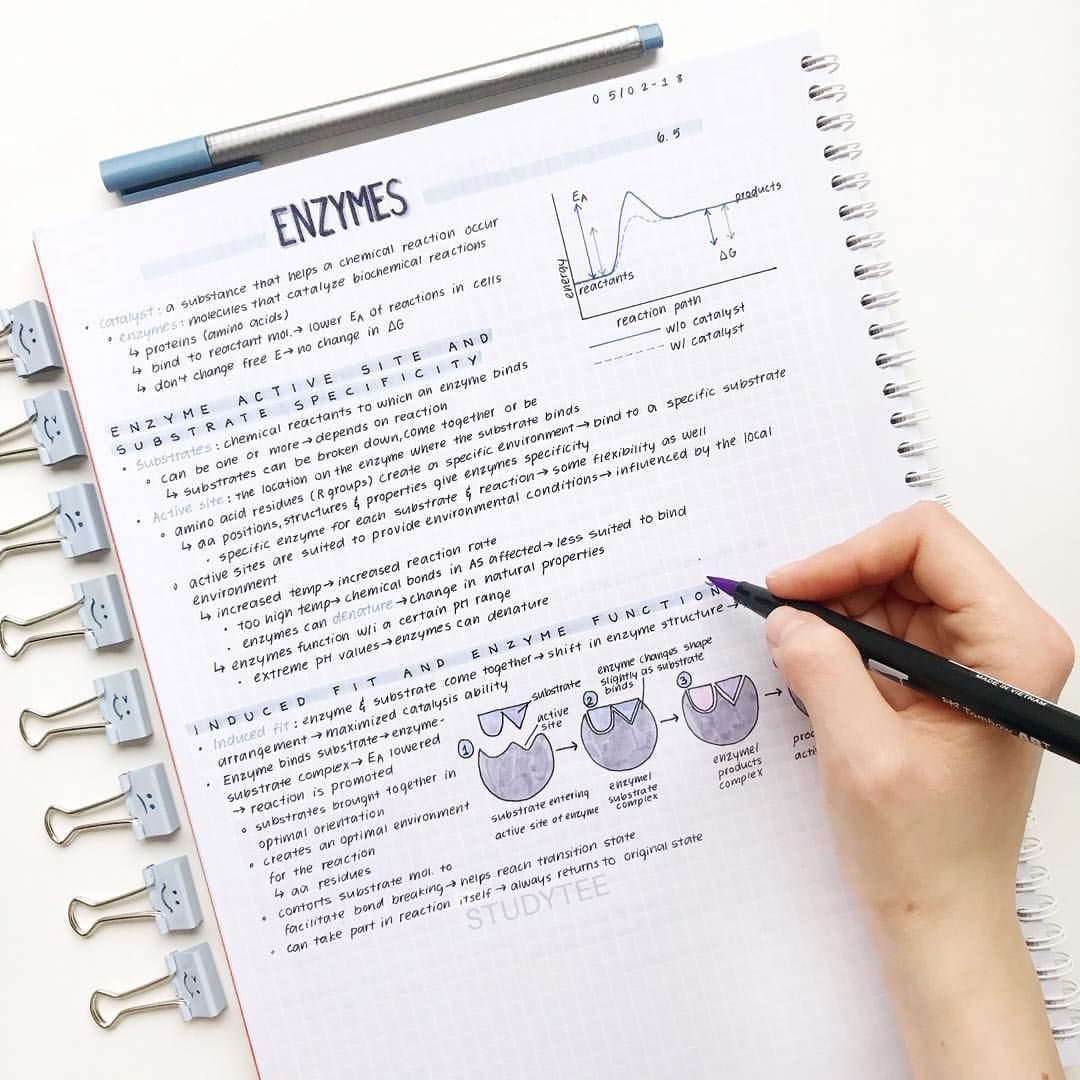 05/02-18
6.5
ENZYMES
• catalyst: a substance that helps a chemical reaction occur
• enzymes: molecules that catalyze biochemical reactions
↳ proteins (amino acids)
↳ bind to reactant mol. → lower EA of reactions in cells
↳ don't change free E → no change in ΔG
EA
products
energy
reactants
ΔG
reaction path
w/o catalyst
w/ catalyst
ENZYME ACTIVE SITE AND
SUBSTRATE SPECIFICITY
• Substrates: chemical reactants to which an enzyme binds
• can be one or more → depends on reaction
↳ substrates can be broken down, come together or be
• Active site: the location on the enzyme where the substrate binds
• amino acid residues (R groups) create a specific environment → bind to a specific substrate
↳ aa positions, structures & properties give enzymes specificity
• specific enzyme for each substrate & reaction → some flexibility as well
• active sites are suited to provide environmental conditions → influenced by the local
environment
↳ increased temp → increased reaction rate
• too high temp → chemical bonds in AS affected → less suited to bind
• enzymes can denature → change in natural properties
↳ enzymes function w/i a certain pH range
• extreme pH values → enzymes can denature
INDUCED FIT AND ENZYME FUNCTION
• Induced fit: enzyme & substrate come together → shift in enzyme structure →
arrangement → maximized catalysis ability
• Enzyme binds substrate → enzyme-
substrate complex → EA lowered
→ reaction is promoted
• substrates brought together in
optimal orientation
• creates an optimal environment
for the reaction
↳ aa residues
• contorts substrate mol. to
facilitate bond breaking → helps reach transition state
• can take part in reaction itself → always returns to original state
1
substrate
active
site
substrate entering
active site of enzyme
2
enzyme changes shape
slightly as substrate
binds
enzyme/
substrate
complex
3
enzyme/
products
complex
STUDYTEE
MADE IN VIETNAM